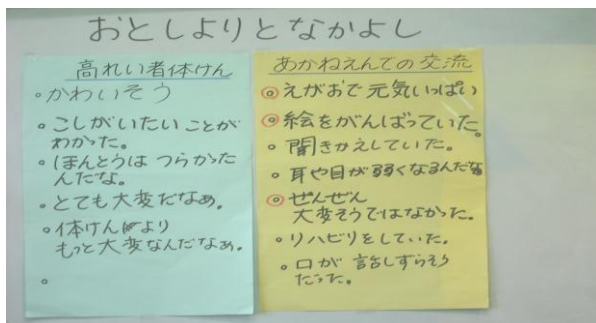 おとしよりとなかよし
高れい者体けん
・かわいそう
・こしがいたいことが
わかった。
・ほんとうは つらかった
んだな。
・とても大変だなぁ。
・体けんより
もっと大変なんだなぁ。
あかねえんでの交流
◎えがおで元気いっぱい
◎絵をがんばっていた。
・聞きかえしていた。
・耳や目が弱くなるんだな
◎ぜんぜん
大変そうではなかった。
・リハビリをしていた。
・口が話しずらそう
だった。